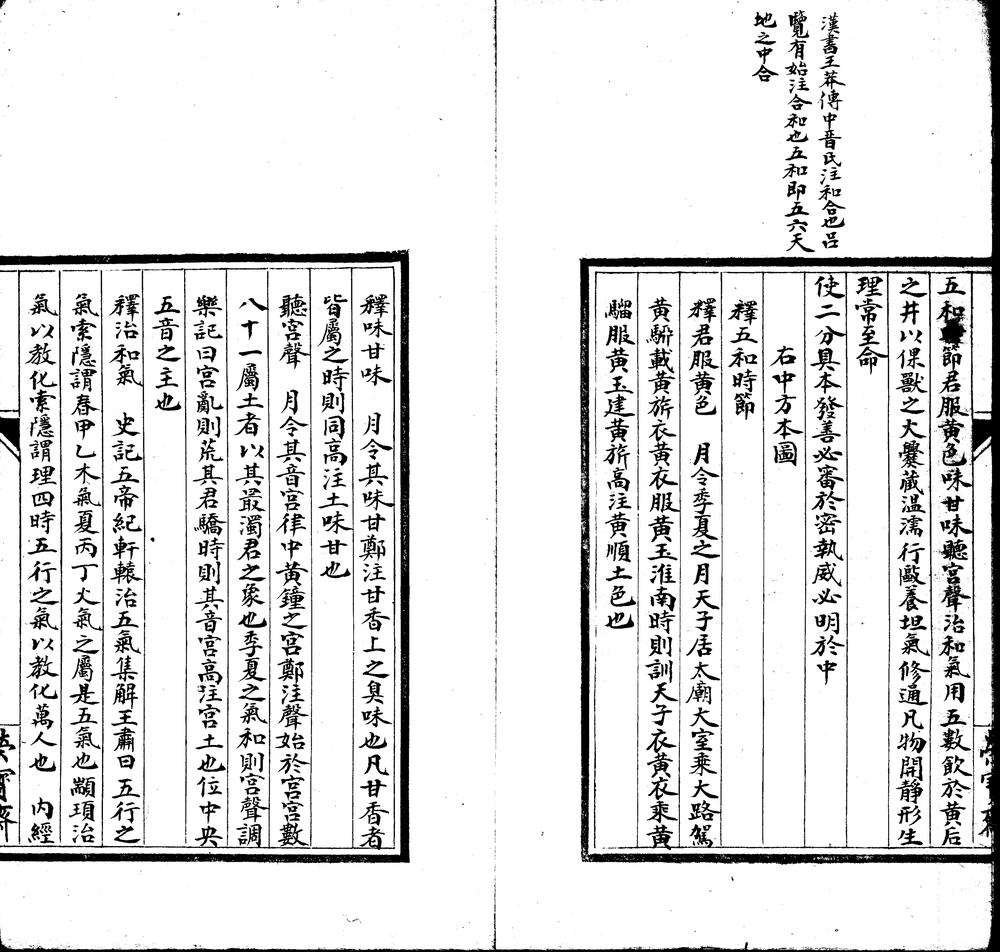 漢書王莽傳中晉氏注和合也呂
覽有始注合和也五和即五六天
地之中合
五和節君服黃色味甘味聽宮聲治和氣用五數飲於黃后
之井以倮獸之火爨藏溫濡行敺養坦氣修通凡物開靜形生
理常至命
使二分具本發善必審於密執威必明於中
右中方本圖
釋五和時節
釋君服黃色 月令季夏之月天子居太廟大室乘大路駕
黃駵載黃旂衣黃衣服黃玉淮南時則訓天子衣黃衣乘黃
騮服黃玉建黃旂高注黃順土色也
釋味甘味 月令其味甘鄭注甘香土之臭味也凡甘香者
皆屬之時則同高注土味甘也
聽宮聲 月令其音宮律中黃鐘之宮鄭注聲始於宮宮數
八十一屬土者以其最濁君之象也季夏之氣和則宮聲調
樂記曰宮亂則荒其君驕時則其音宮高注宮土也位中央
五音之主也
釋治和氣 史記五帝紀軒轅治五氣集解王肅曰五行之
氣索隱謂春甲乙木氣夏丙丁火氣之屬是五氣也顓頊治
氣以教化索隱謂理四時五行之氣以教化萬人也 內經